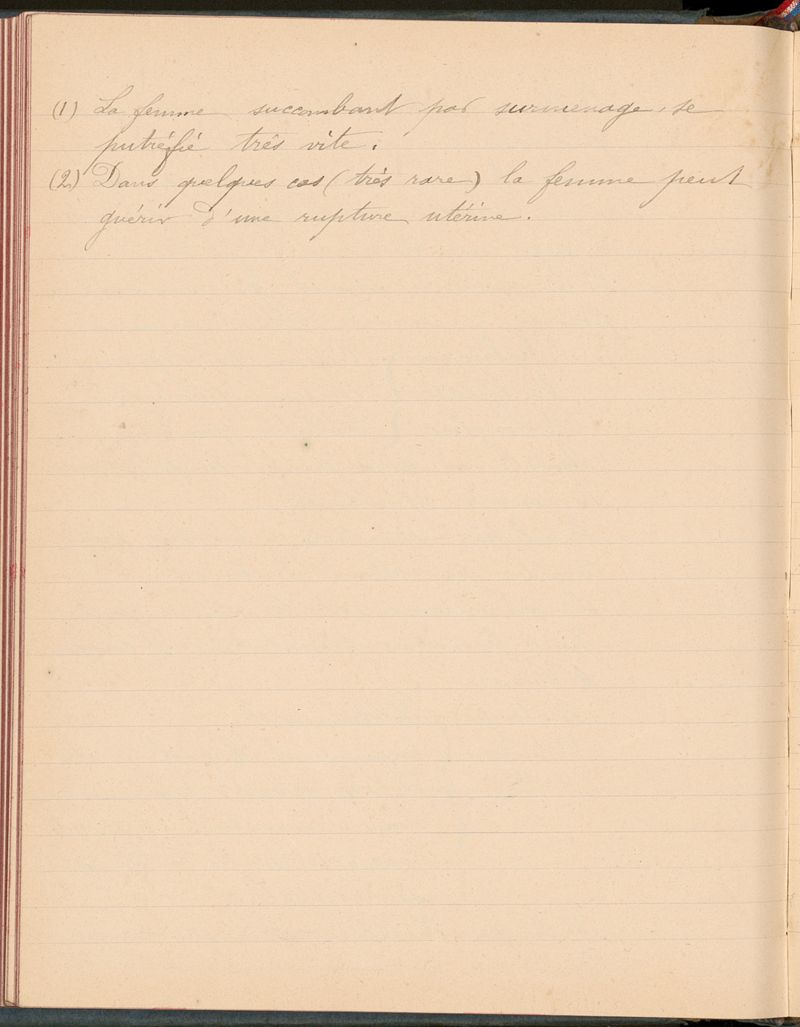 (1) La femme succombant par surmenage, se
putréfie très vite.
(2) Dans quelques cas (très rare) la femme peut
guérir d'une rupture utérine.